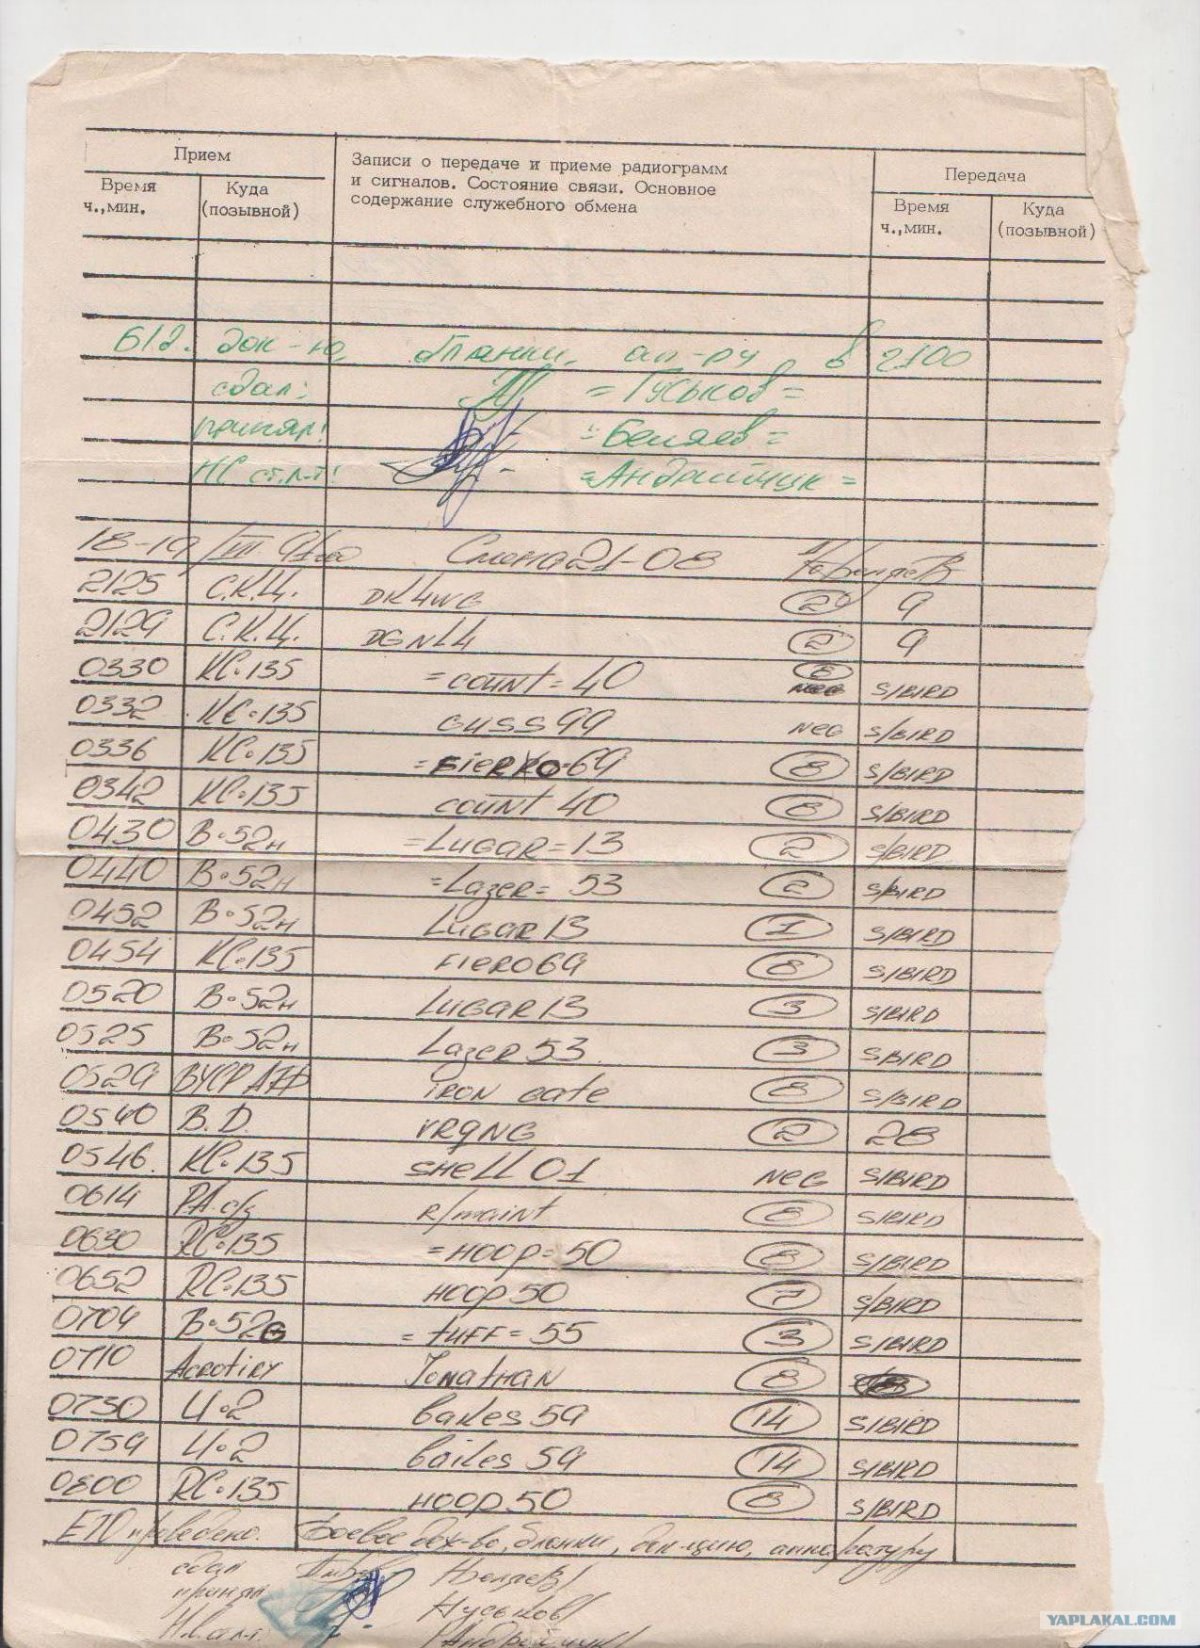 Прием Записи о передаче и приеме радиограмм Передача
и сигналов. Состояние связи. Основное
содержание служебного обмена
Время Куда Время Куда
ч.,мин. (позывной) ч.,мин. (позывной)
612. док-ю, бланки, ап-ру в 2100
сдал: =Гуськов=
принял: =Беляев=
НС ст.л-т: =Андрийчук=
18-19/VIII 91 Смена 21-08
2125 С.К.Ц. DK4WG 2 9
2129 С.К.Ц. DGNL4 2 9
0330 КС•135 =count=40 8 S/BIRD
0332 КС•135 GUSS99 NEG S/BIRD
0336 КС•135 =FIERRO•69 8 S/BIRD
0342 КС•135 count 40 8 S/BIRD
0430 В•52н =LUGAR=13 2 S/BIRD
0440 В•52н =Lazer=53 2 S/BIRD
0452 В•52н LUGAR13 1 S/BIRD
0454 КС•135 FIERO69 8 S/BIRD
0520 В•52н LUGAR13 3 S/BIRD
0525 В•52н Lazer53 3 S/BIRD
0529 iron Gate 8 S/BIRD
0540 B.D. VRQNG 2 28
0546. КС•135 SHELL01 NEG S/BIRD
0614 r/maint 8 S/BIRD
0630 RC•135 =HOOP=50 8 S/BIRD
0652 RC•135 HOOP50 7 S/BIRD
0704 В•52G =tuFF=55 3 S/BIRD
0710 Acrotiry Jonathan 8
0730 U•2 bailes59 14 S/BIRD
0759 U•2 bailes 59 14 S/BIRD
0800 RC•135 HOOP50 8 S/BIRD
ЕТО проведено. Боевое деж-во, бланки, док-цию, аппаратуру
сдал Беляев/
принял Гуськов/
Андрийчук/
YAPLAKAL.COM